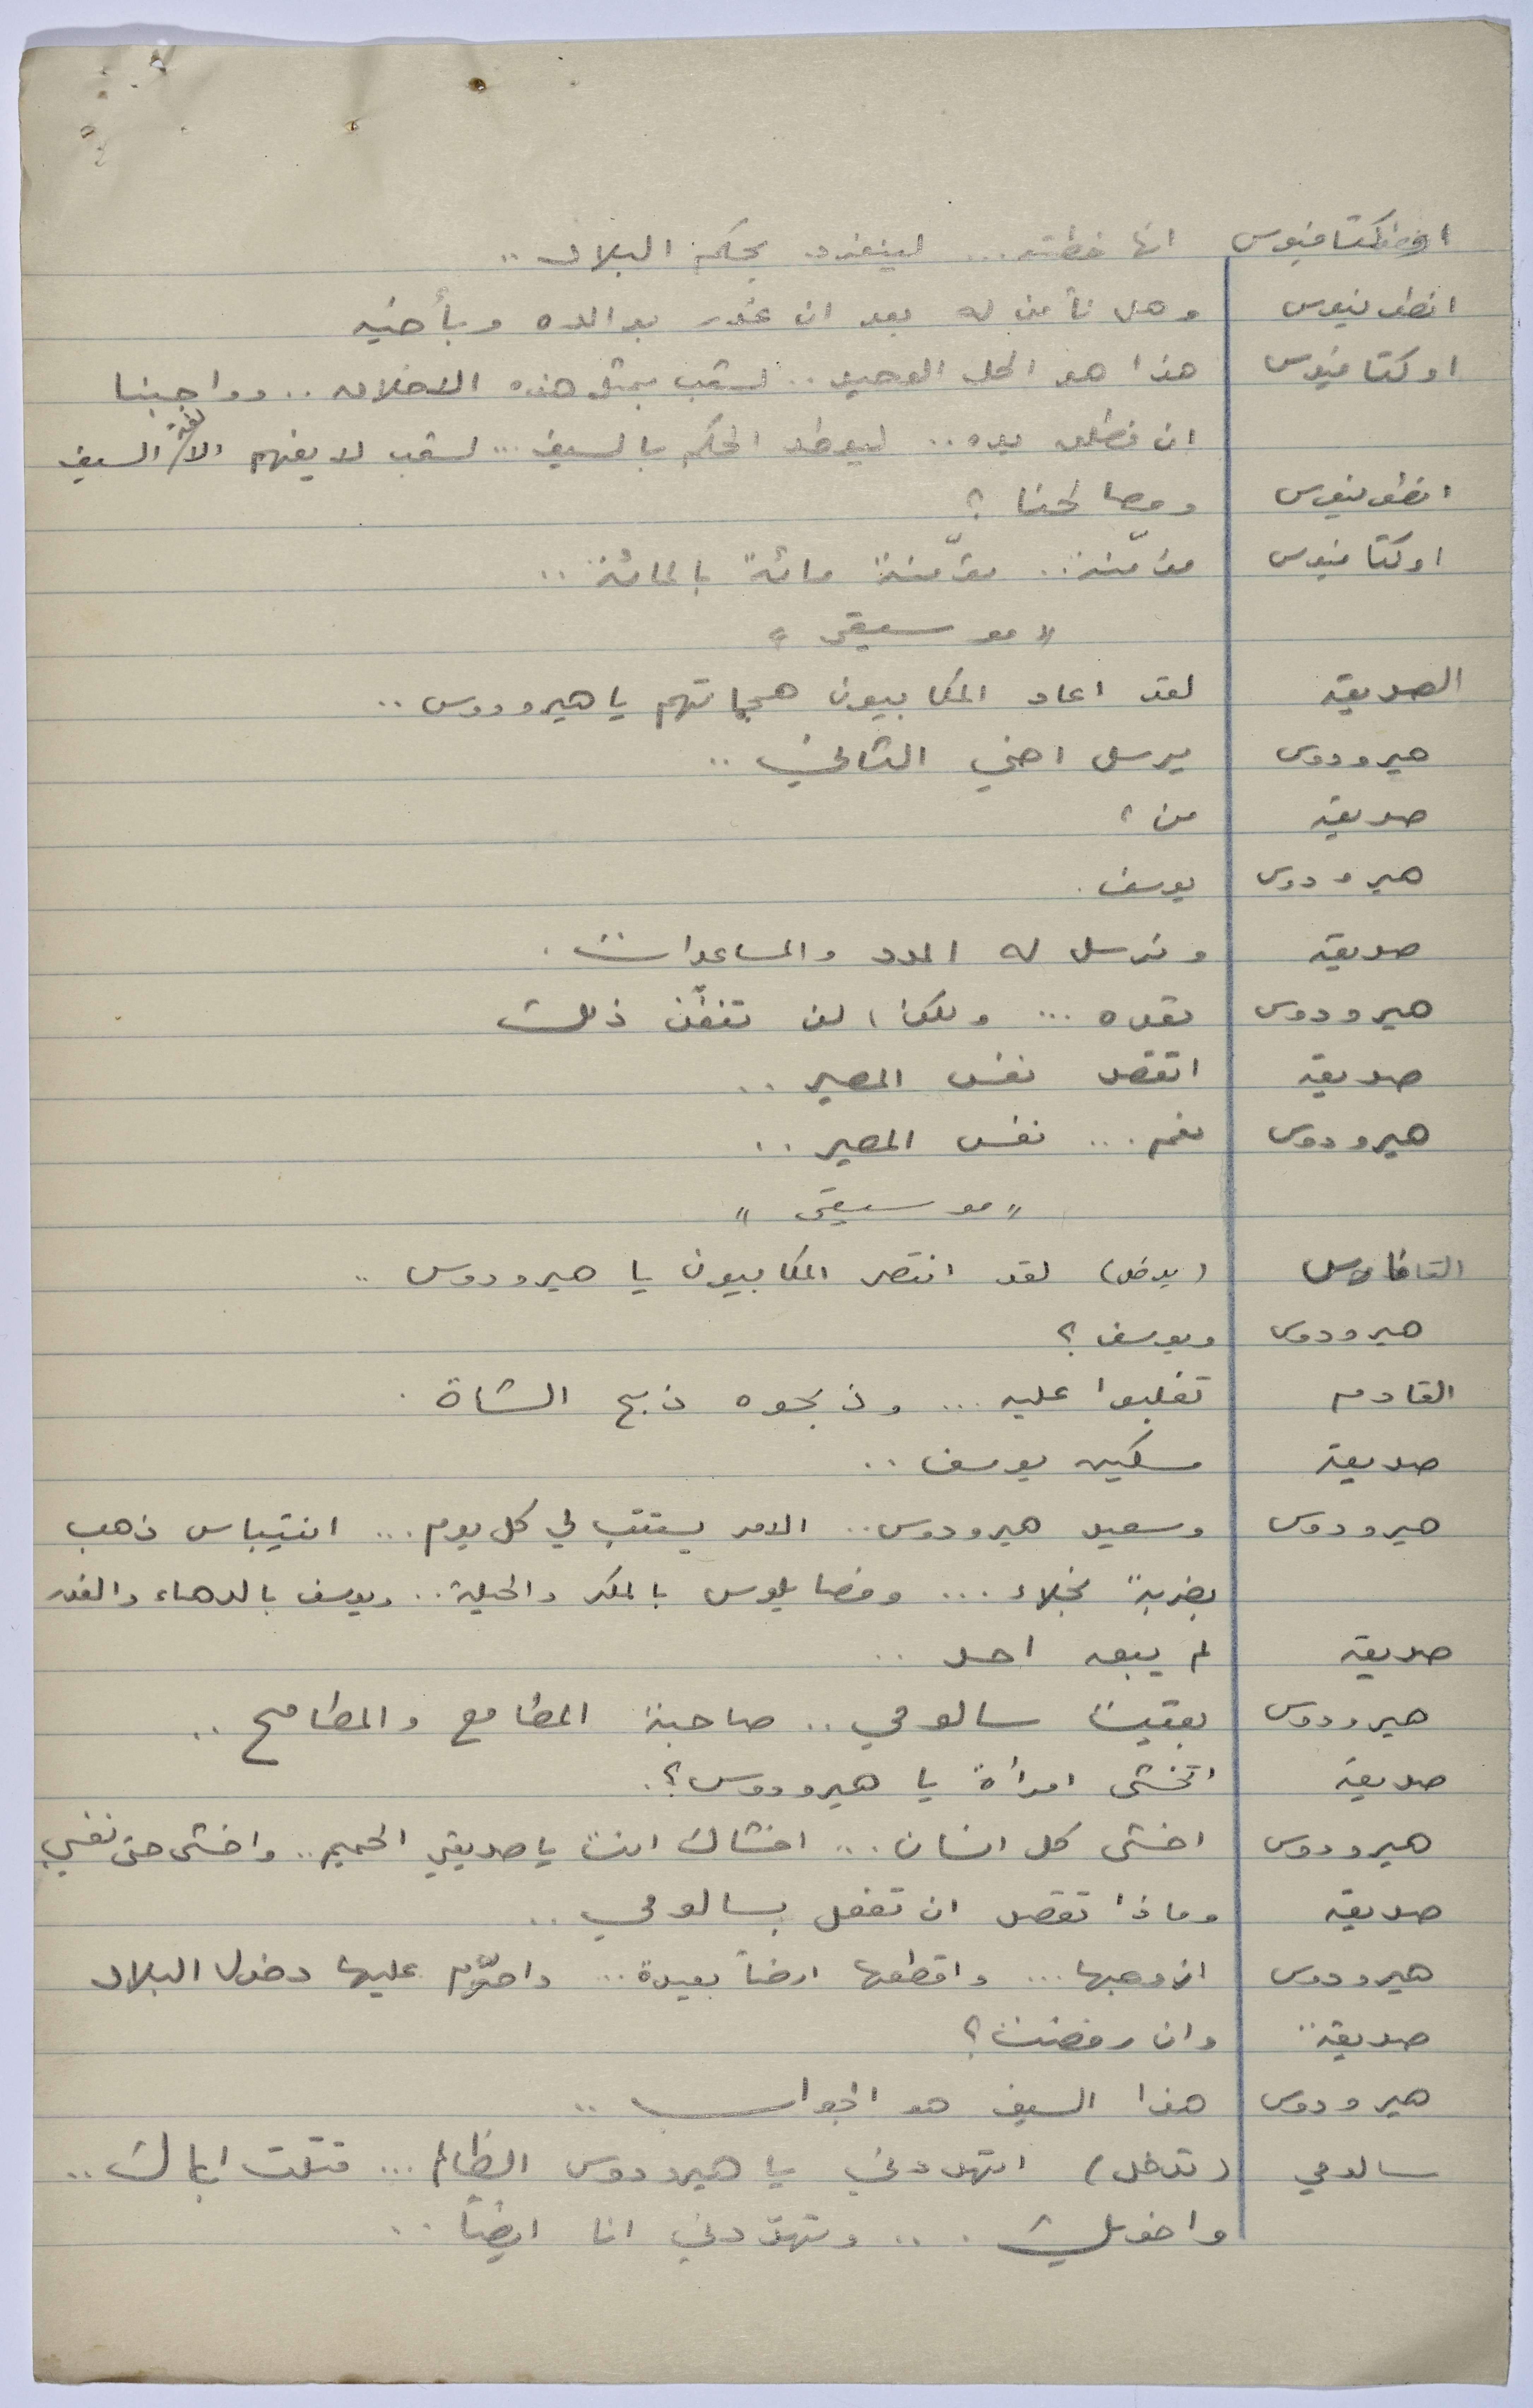 اوكتافيوس انها خطته... لينفرد بحكم البلاد ..
انطونيوس وهل نأمن له بعد ان غدر بوالده وبأخيه
اوكتافيوس هذا هو الحل الوحيد .. لشعب بمثل هذه الاخلاق .. وواجبنا
ان نطلق يده .. ليوطد الحكم بالسيف ... لشعب لا يفهم الا لغة السيف
انطونيوس ومصالحنا ؟
اوكتافيوس مؤمّنة .. مؤمّنة مائة بالمائة ..
" موسيقى "
الصديق لقد اعاد المكابيون هجماتهم يا هيرودوس ..
هيرودوس يرسل اخي الثاني ..
صديقه من ؟
هيرودوس يوسف .
صديقه ونرسل له المدد والمساعدات .
هيرودوس نعده ... ولكن لن تنفّذ ذلك
صديقه اتقصد نفس المصير ..
هيرودوس نعم ... نفس المصير ..
" موسيقى "
القادم (يدخل) لقد انتصر المكابيون يا هيرودوس ..
هيرودوس ويوسف ؟
القادم تغلبوا عليه ... وذبحوه ذبح الشاة .
صديقه مسكين يوسف ..
هيرودوس وسعيد هيرودوس .. الامر يستتب لي كل يوم ... انتيباس ذهب
بضربة نجلاء ... وفصايلوس بالمكر والحيلة .. ويوسف بالدهاء والغدر
صديقه لم يبق احد ..
هيرودوس بقيت سالومي .. صاحبة المطامع والمطامح ..
صديقه اتخشى امرأة يا هيرودوس ؟ .
هيرودوس اخشى كل انسان ... اخشاك انت يا صديقي الحميم .. واخشى حتى نفسي
صديقه وماذا تقصد ان تفعل بسالومي ..
هيرودوس ازوجها ... واقطعها ارضاً بعيدة ... واحرّم عليها دخول البلاد
صديقه .. وان رفضت ؟
هيرودوس هذا السيف هو الجواب ..
سالومي (تدخل) اتهددني يا هيرودوس الظالم ... قتلت اباك ..
واخويك .... وتهدّدني انا ايضاً ..